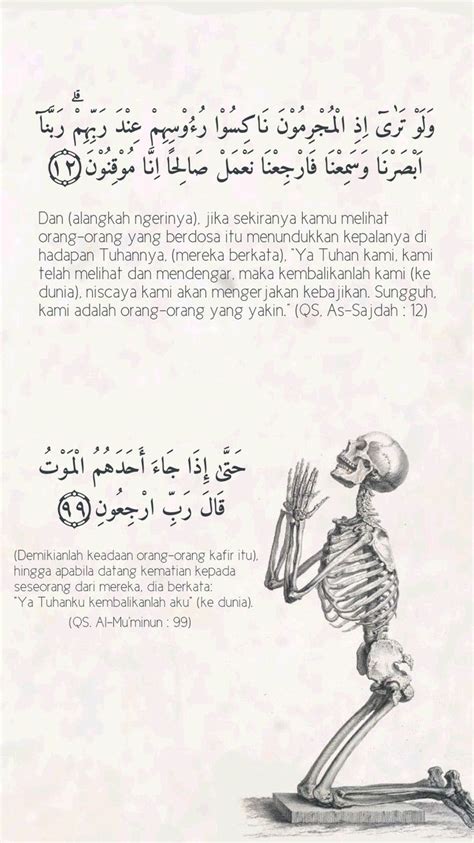 وَلَوْ تَرٰىٓ اِذِ الْمُجْرِمُوْنَ نَاكِسُوْا رُءُوْسِهِمْ عِنْدَ رَبِّهِمْۗ رَبَّنَآ
اَبْصَرْنَا وَسَمِعْنَا فَارْجِعْنَا نَعْمَلْ صَالِحًا اِنَّا مُوْقِنُوْنَ ١٢
Dan (alangkah ngerinya), jika sekiranya kamu melihat
orang-orang yang berdosa itu menundukkan kepalanya di
hadapan Tuhannya, (mereka berkata), "Ya Tuhan kami, kami
telah melihat dan mendengar, maka kembalikanlah kami (ke
dunia), niscaya kami akan mengerjakan kebajikan. Sungguh,
kami adalah orang-orang yang yakin." (QS. As-Sajdah : 12)
حَتَّىٰ إِذَا جَاءَ أَحَدَهُمُ الْمَوْتُ
قَالَ رَبِّ ارْجِعُونِ ٩٩
(Demikianlah keadaan orang-orang kafir itu),
hingga apabila datang kematian kepada
seseorang dari mereka, dia berkata:
"Ya Tuhanku kembalikanlah aku" (ke dunia).
(QS. Al-Mu'minun : 99)